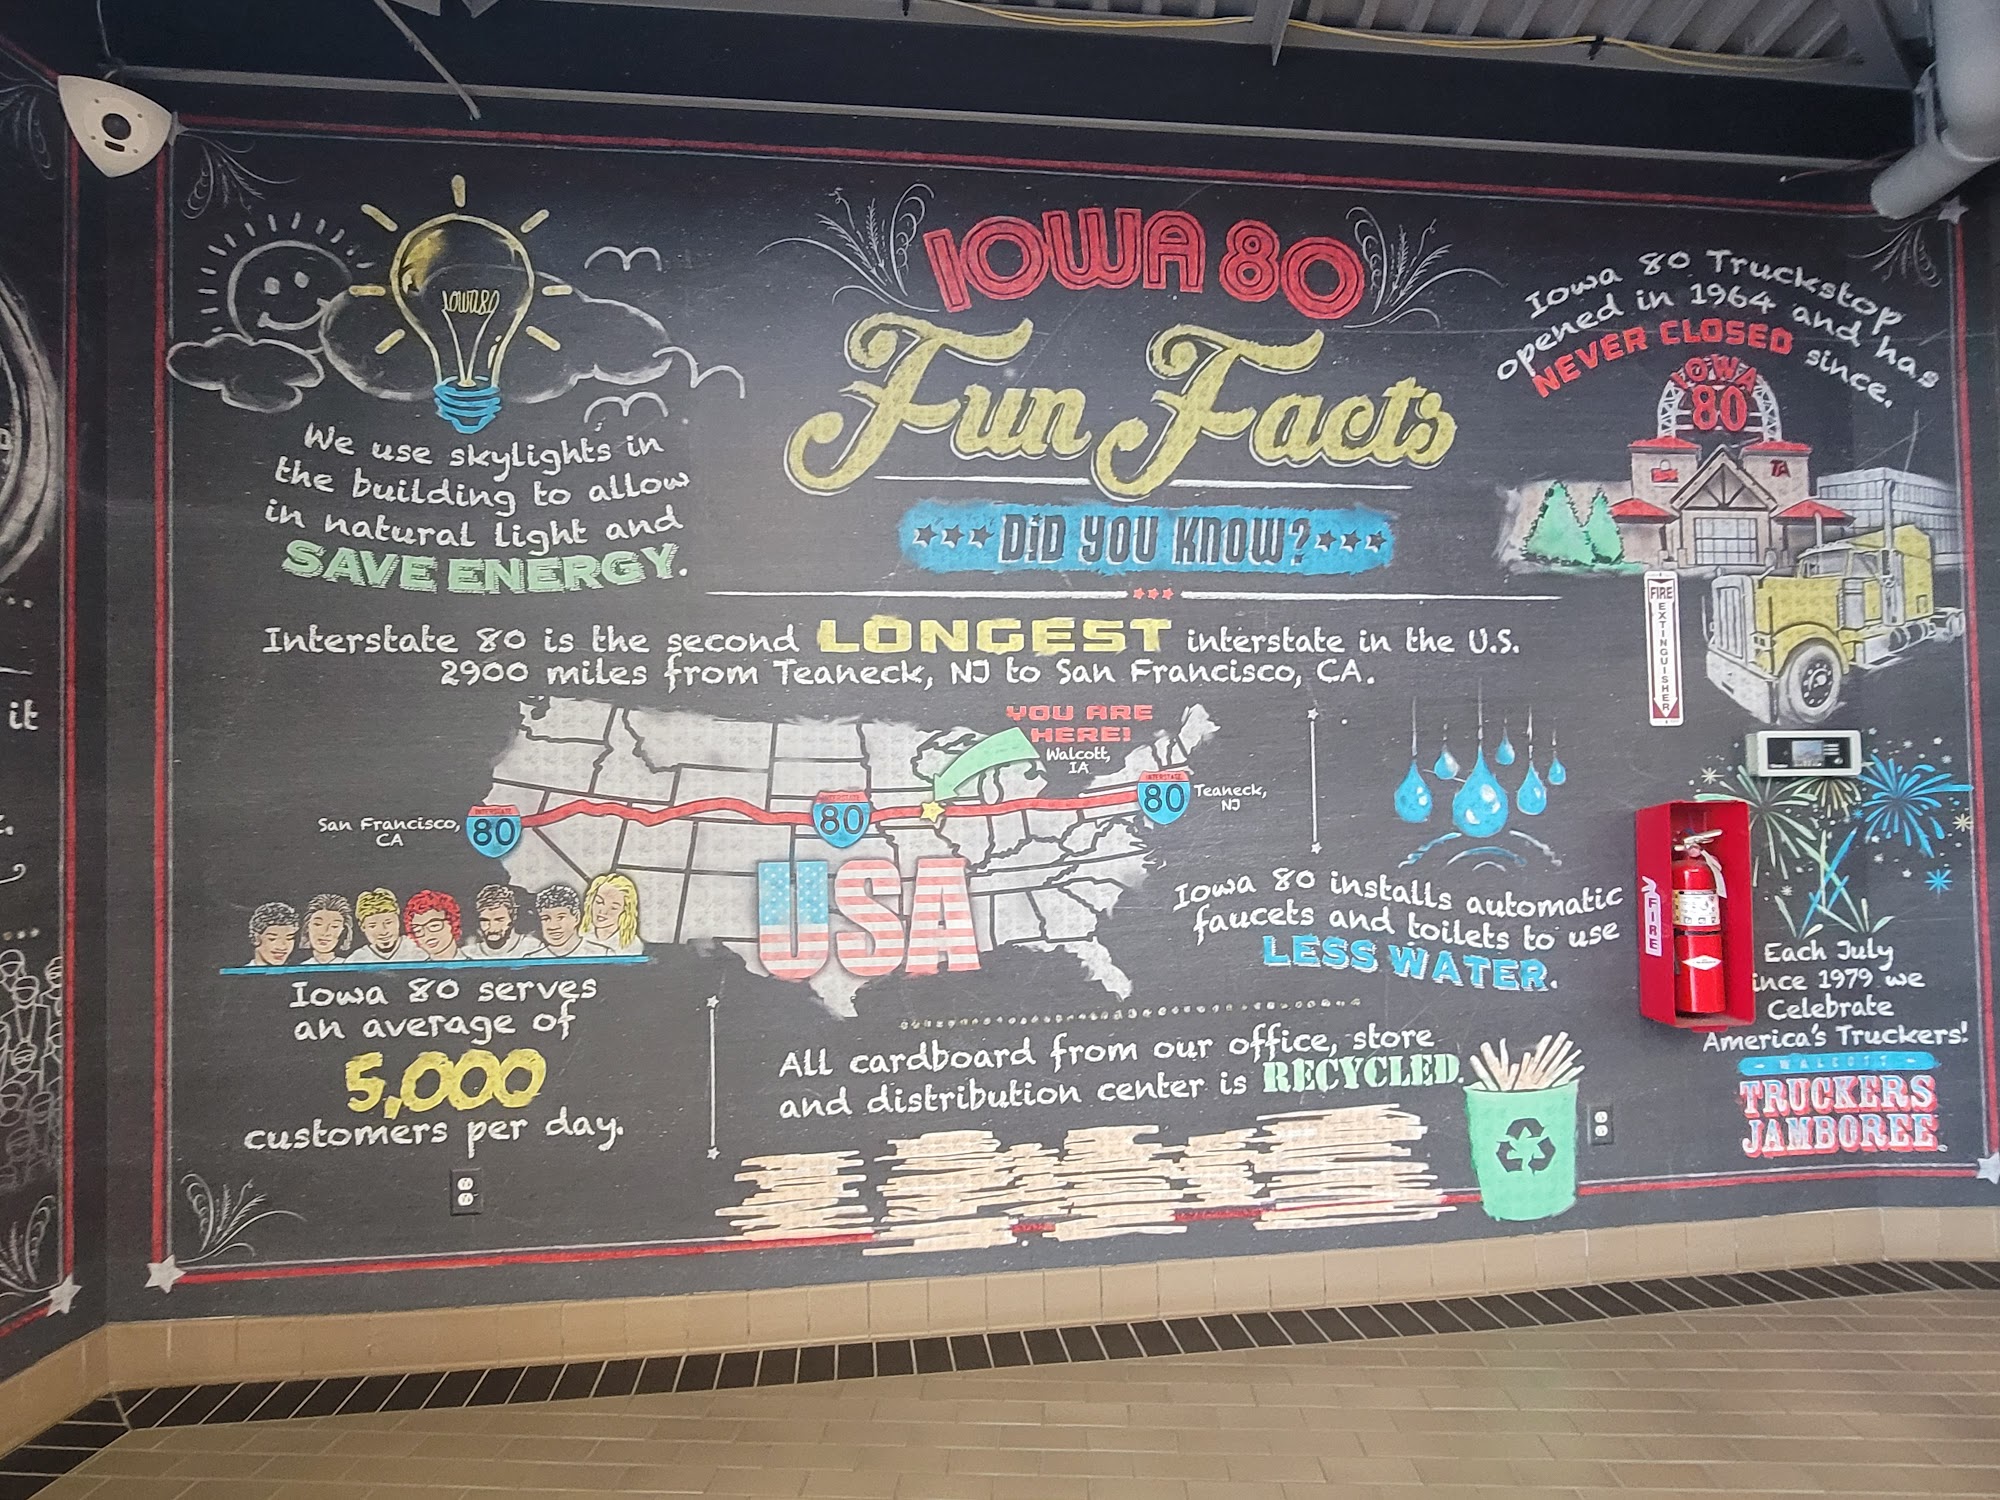 IOWA 80
Fun Facts
DID YOU KNOW?
IOWA80
We use skylights in
the building to allow
in natural light and
SAVE ENERGY.
Iowa 80 Truckstop
opened in 1964 and has
NEVER CLOSED since.
IOWA
80
TA
FIRE
EXTINGUISHER
Interstate 80 is the second LONGEST interstate in the U.S.
2900 miles from Teaneck, NJ to San Francisco, CA.
YOU ARE
HERE!
Walcott,
IA
San Francisco,
CA
INTERSTATE
80
INTERSTATE
80
INTERSTATE
80
Teaneck,
NJ
USA
Iowa 80 installs automatic
faucets and toilets to use
LESS WATER.
FIRE
Each July
ince 1979 we
Celebrate
America's Truckers!
WALCOTT
TRUCKERS
JAMBOREE
Iowa 80 serves
an average of
5,000
customers per day.
All cardboard from our office, store
and distribution center is RECYCLED.
it